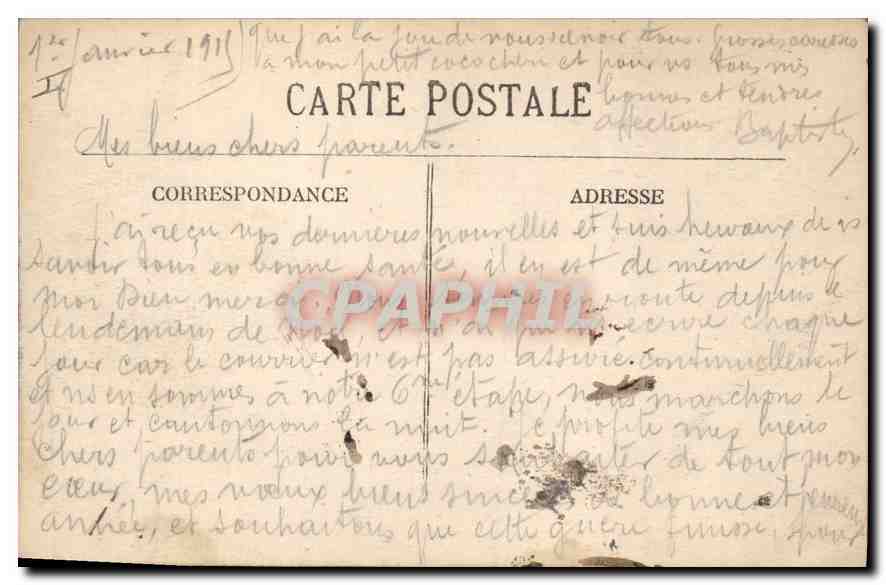 1er Janvier 1915
que j'ai la joie de vous revoir tous. Grosses caresses
à mon petit coco chéri et pour vs tous mes
bonnes et tendres
affections Baptiste
CARTE POSTALE
Mes biens chers parents.
CORRESPONDANCE
ADRESSE
J'ai reçu vos dernières nouvelles et suis heureux de vs
savoir tous en bonne santé, il en est de même pour
moi Dieu merci. Nous en route depuis le
lendemain de Noël écrire chaque
jour car le courrier n'est pas assuré continuellement
et ns en sommes à notre 6me étape, nous marchons le
jour et cantonnons la nuit. Je profite mes biens
chers parents pour vous souhaiter de tout mon
cœur mes vœux biens sincères de bonne et heureuse
année, et souhaitons que cette guerre finisse, pour
CPAPHIL